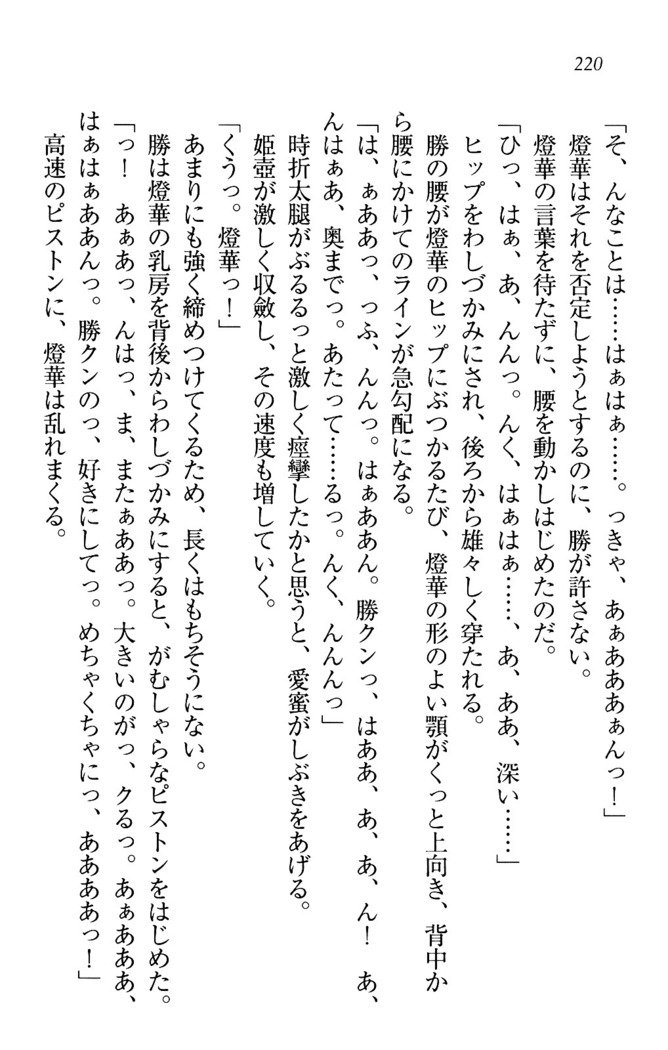 220
「そ、んなことは……はぁはぁ……。っきゃ、あぁあああぁんっ！」
燈華はそれを否定しようとするのに、勝が許さない。
燈華の言葉を待たずに、腰を動かしはじめたのだ。
「ひっ、はぁ、あ、んんっ。んく、はぁはぁ……、あ、ああ、深い……」
ヒップをわしづかみにされ、後ろから雄々しく穿たれる。
勝の腰が燈華のヒップにぶつかるたび、燈華の形のよい顎がくっと上向き、背中か
ら腰にかけてのラインが急勾配になる。
「は、ぁああっ、っふ、んんっ。はぁああん。勝クンっ、はああ、あ、あ、ん！　あ、
んはぁあ、奥までっ。あたって……るっ。んく、んんんっ」
時折太腿がぶるるっと激しく痙攣したかと思うと、愛蜜がしぶきをあげる。
姫壺が激しく収斂し、その速度も増していく。
「くうっ。燈華っ！」
あまりにも強く締めつけてくるため、長くはもちそうにない。
勝は燈華の乳房を背後からわしづかみにすると、がむしゃらなピストンをはじめた。
「っ！　あぁあっ、んはっ、ま、またぁああっ。大きいのがっ、クるっ。あぁあああ、
はぁはぁああんっ。勝クンのっ、好きにしてっ。めちゃくちゃにっ、ああああっ！」
高速のピストンに、燈華は乱れまくる。